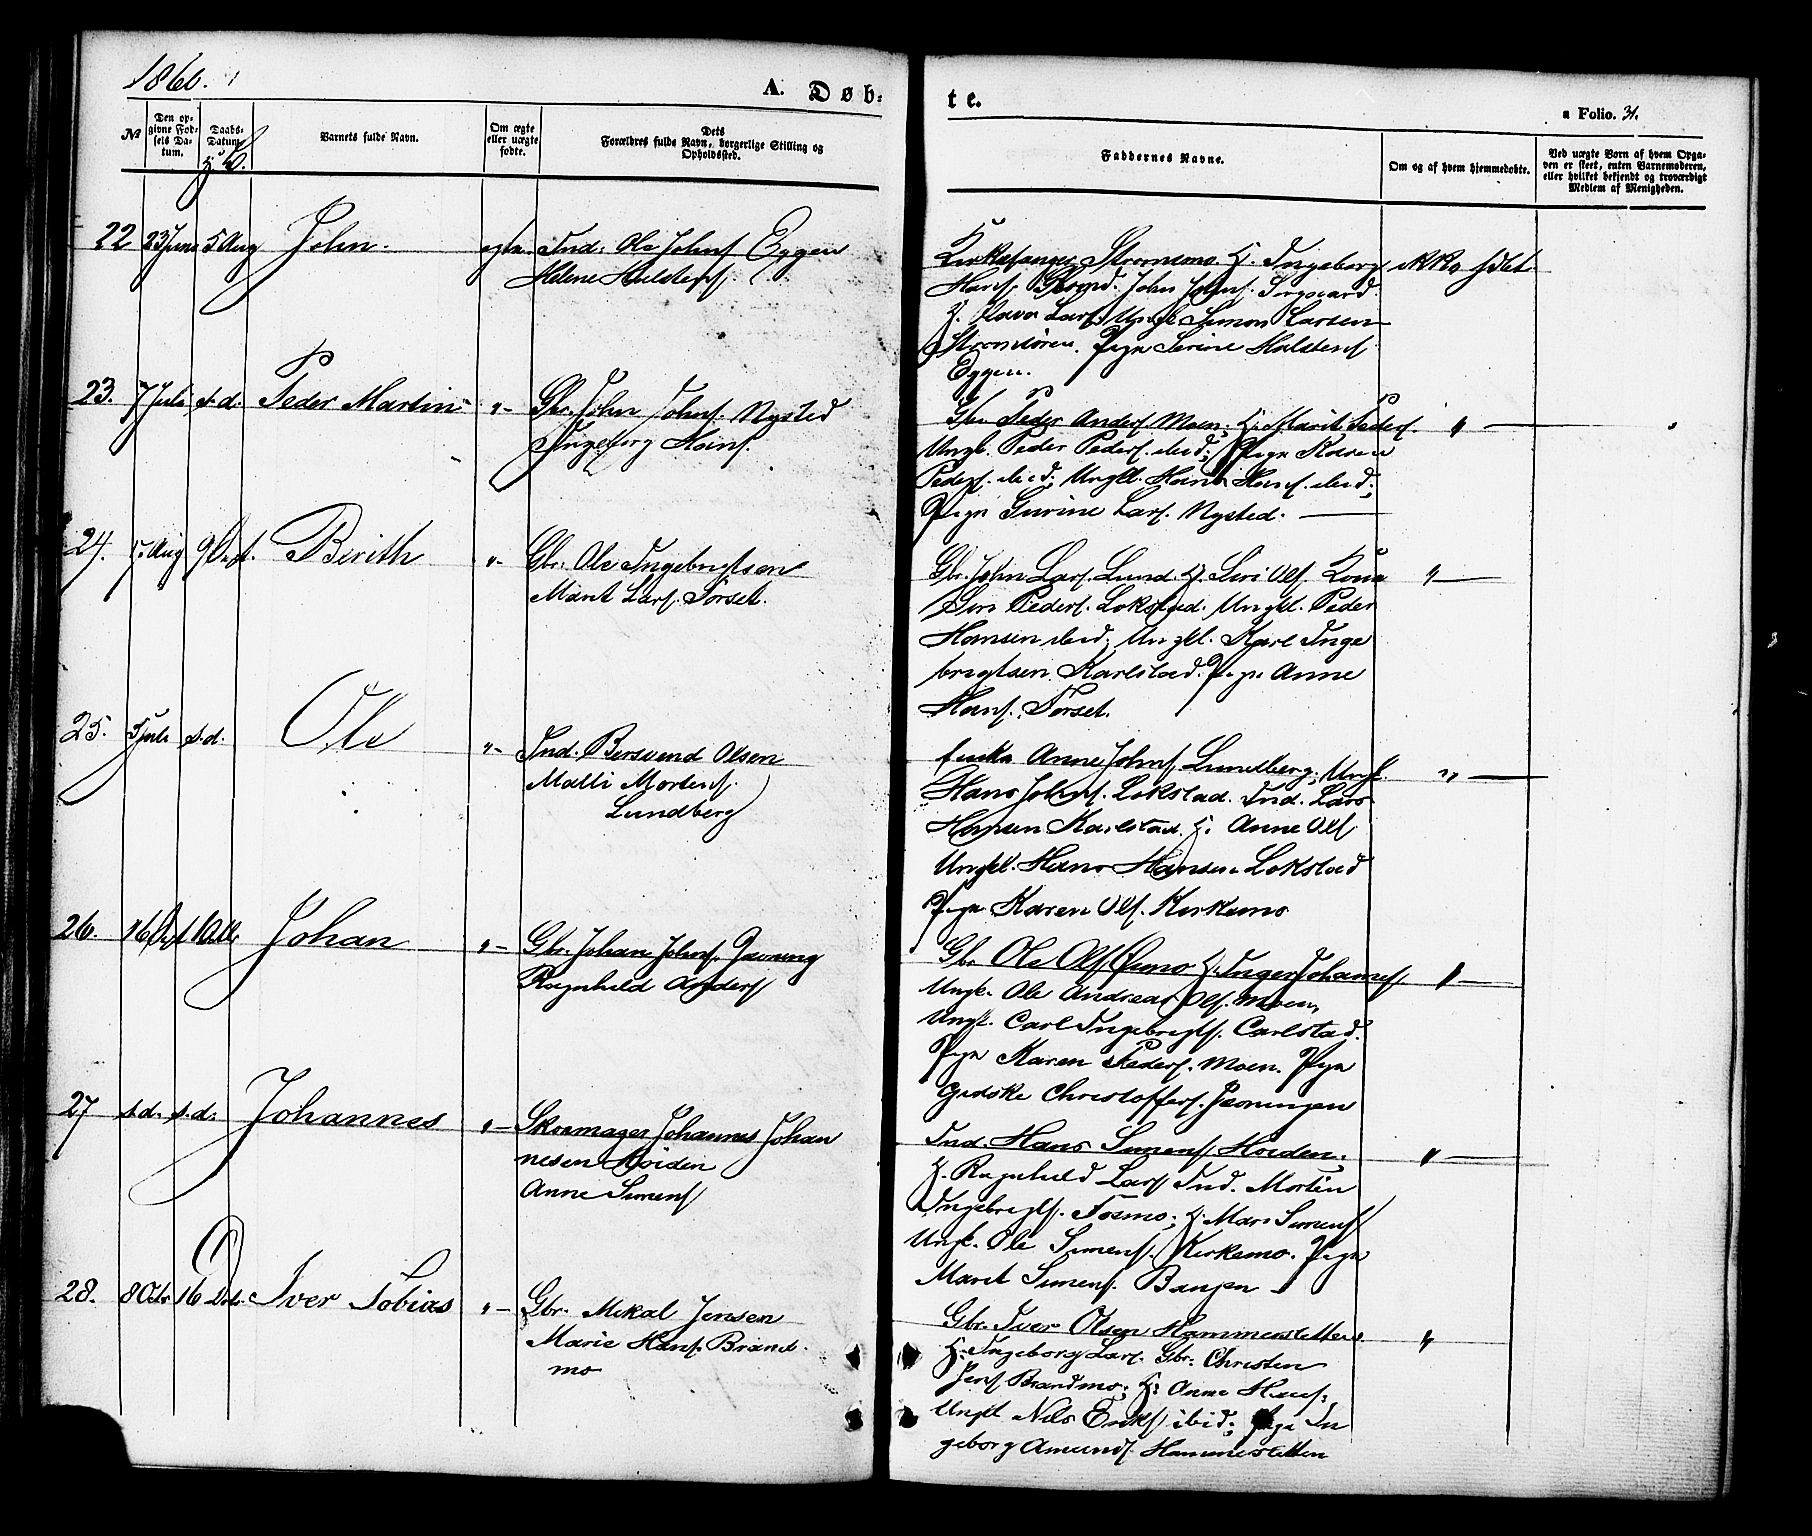 1860.
A. Døb-
te.
a Folio. 31.
№
Den opgivne Fødsels Datum.
Daabs-Datum.
Barnets fulde Navn.
Om ægte eller uægte fødte.
Dets Forældres fulde Navn, borgerlige Stilling og Opholdssted.
Faddernes Navne.
Om og af hvem hjemmedøbte.
Ved uægte Børn af hvem Opgaven er skeet, enten Barnemoderen, eller hvilket bekjendt og troværdigt Medlem af Menigheden.
22 23 Juni 5 Aug John. egte. Ind: Ole Johns. Eggen
Helene Halstens.
Kirkesanger Strømsmo H. Ingeborg ikke hdbt.
Hans. Gbrmd. John Johns.
H. Olava Lars. Ungk Simon Larsen
Strømsören. Pige Serine Halstens.
Eggen.
23. 7 Juli s.d. Peder Martin "- Gbr. John Johns. Nysted
Ingeborg Hans.
Gbr. Peder Anders. Moen; H. Marit Peders. "
Ungk. Peder Peders. ibid; Pige Karen
Peders. ibid; Ungkl. Hans Hans. ibid;
Pige Lars. Nysted.
24. 5 Aug 9 Berith "- Gbr. Ole Ingebrigtsen
Marit Lars. Forset.
Gbr. John Lars. Lund. H. Siri Ols. Kone "
Peders. Lokstad. Ungkl. Peder
Hansen ibid; Ungkl. Karl Inge
brigtsen Karlstad. Pige Anne
Hans. Forset.
25. Juli s.d. Ole "- Ind. Bersvend Olsen
Malli Mortens.
Lundberg
Enke Anne Johns. Lundberg; Ungk. "
Hans Johns. Lokstad. Ind. Lars
Hansen Karlstad. H. Anne Ols.
Ungkl. Hans Hansen Lokstad
Pige Karen Ols. Kirkemo
26. 16 Johan "- Gbr. Johan Johns.
Ragnhild Anders.
Gbr Ole Ols. H. Inger Johannes. "
Ungk. Ole Andreas Ols. Moen,
Ungk. Carl Ingebrigts. Carlstad.
Pige Karen Peders. Moen. Pige
Gidske Christoffers.
27 s.d. s.d. Johannes "- Skomager Johannes Johan
nesen Höiden
Anne Simens.
Ind. Hans Simens. Höiden, "
H. Ragnhild Lars. Ind. Morten
Ingebrigts. Fosmo; H. Mari Simens.
Ungk. Ole Simens. Kirkemo. Pige
Marit Simens.
28. 8 Octr 16 Iver Tobias "- Gbr. Mikal Jensen
Marie Hans. Brand
mo
Gbr. Iver Olsen "
H. Ingeborg Lars. Gbr. Christen
Jens. Brandmo; H: Anne Hans.
Ungkl Nils Eriks. ibid; Pige In
geborg Amunds.